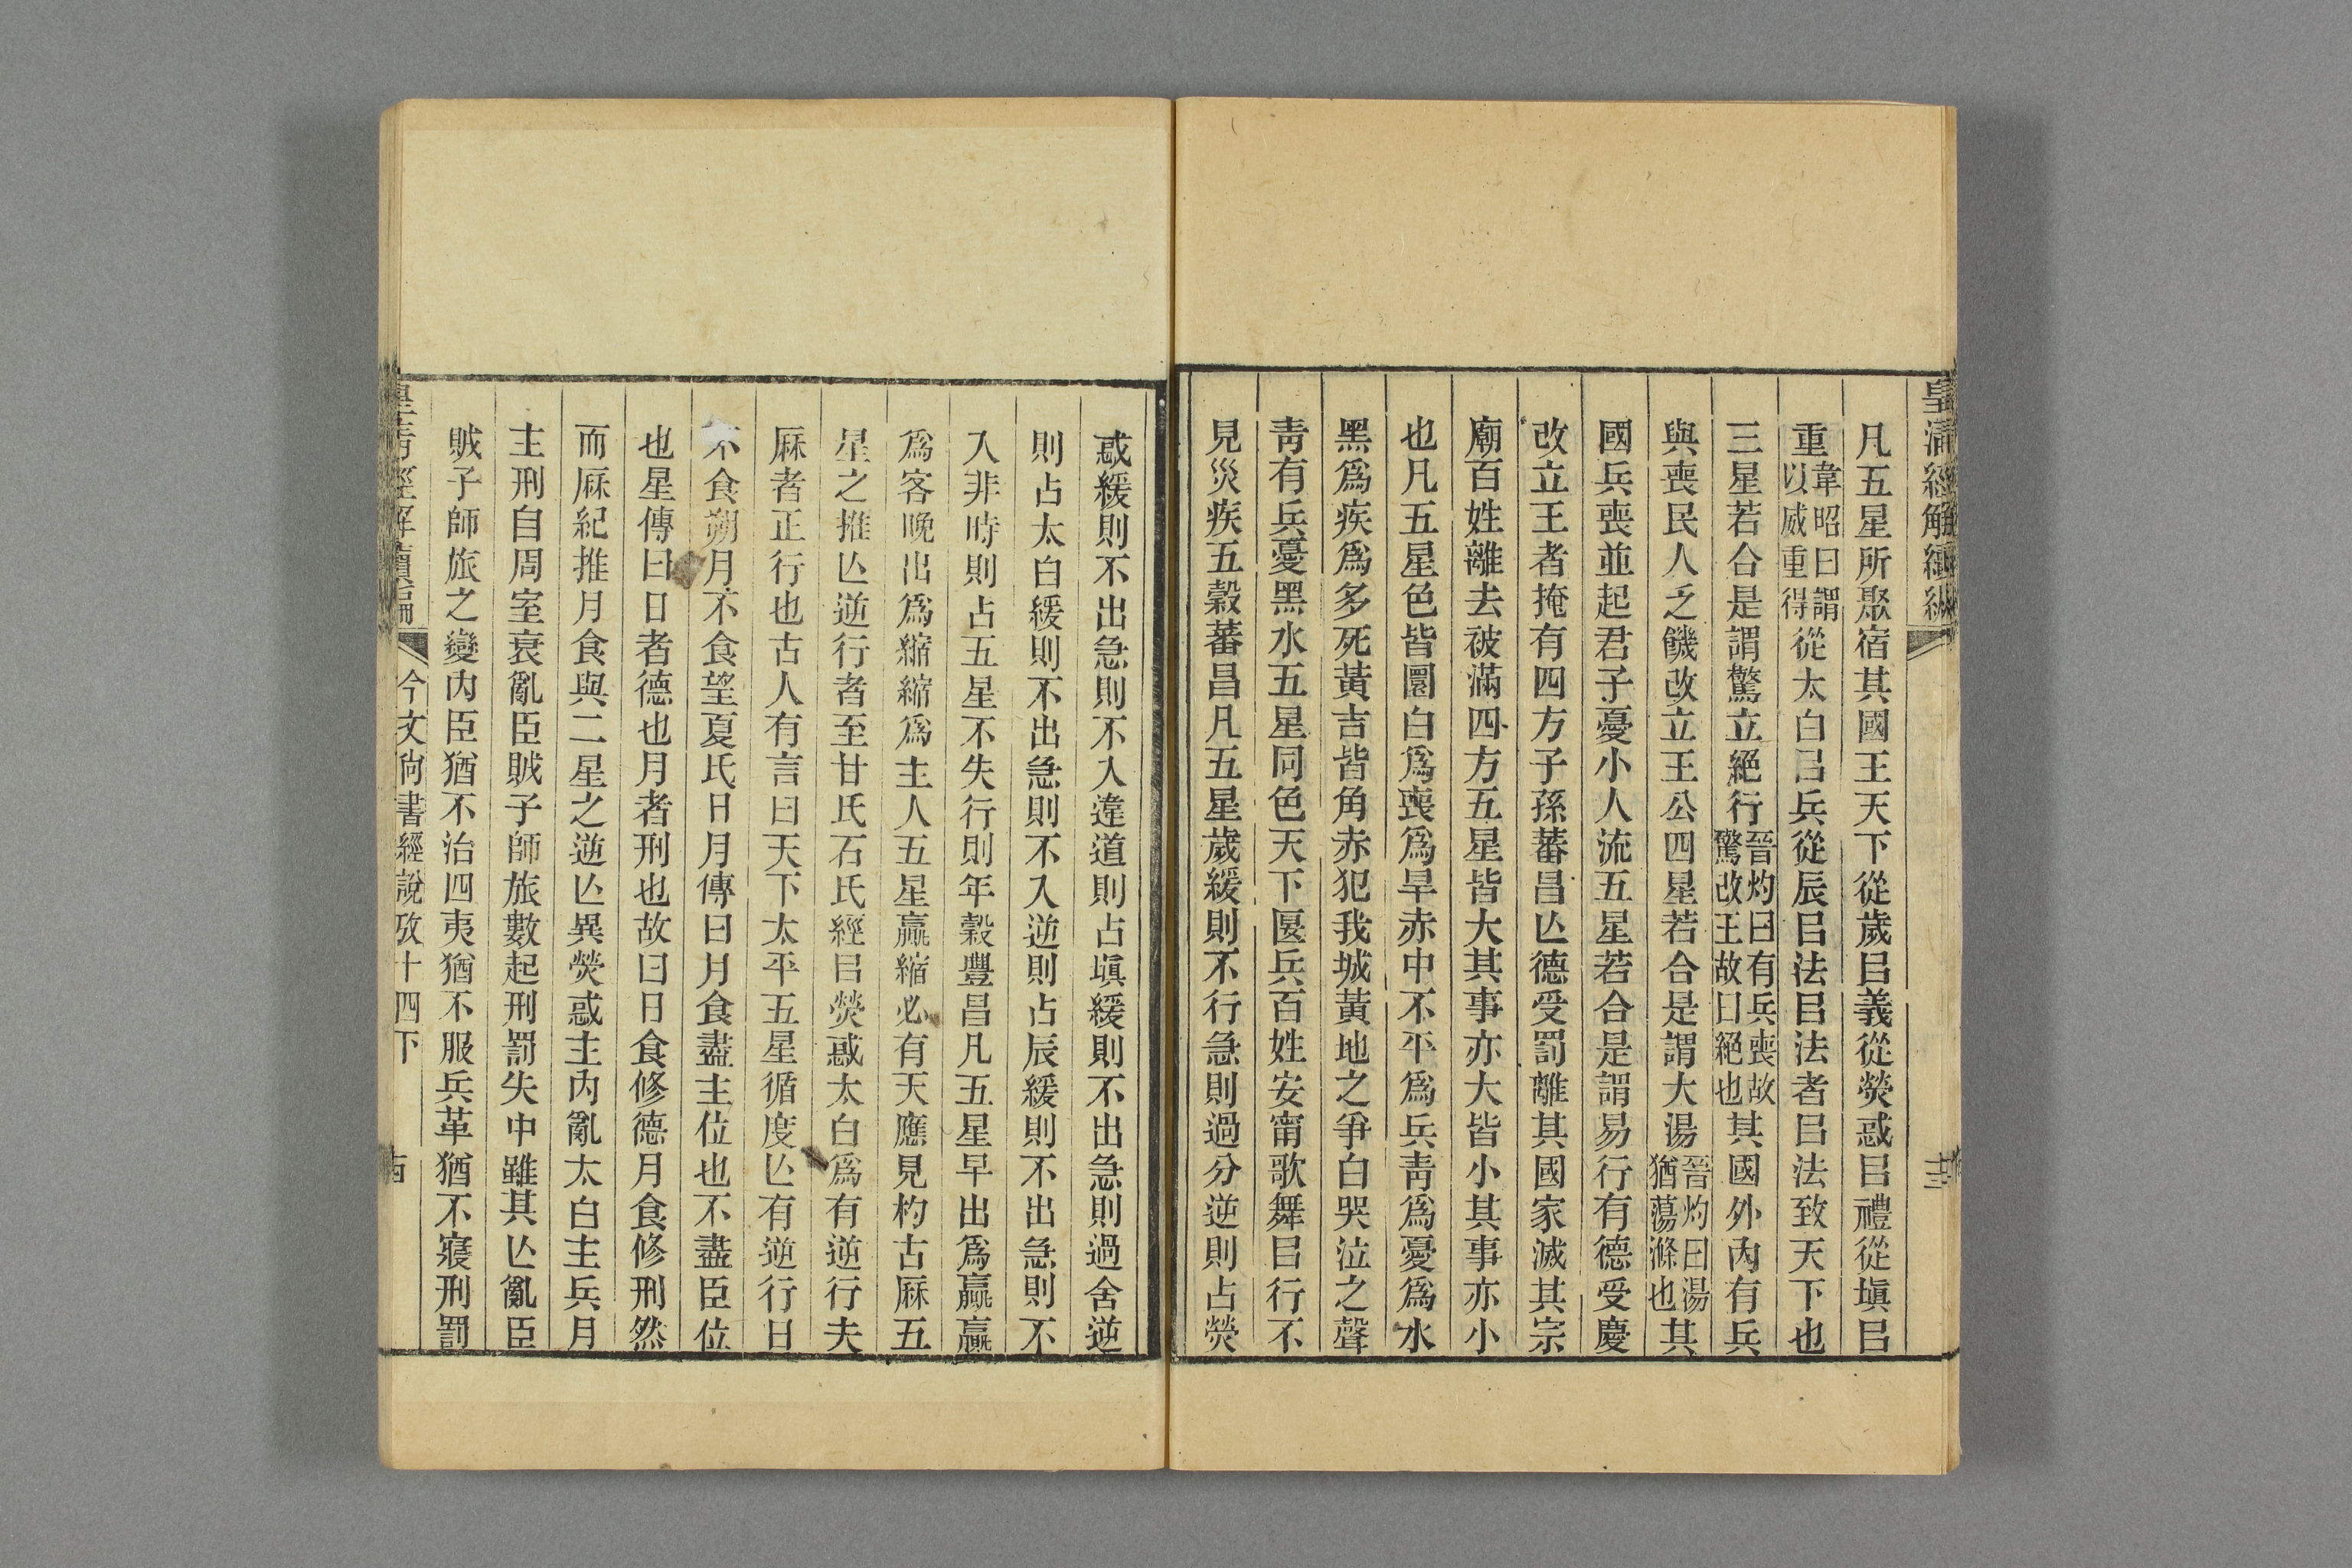 皇清經解續編
凡五星所聚宿其國王天下從歲㠯義從熒惑㠯禮從塡㠯
重韋昭曰謂以威重得從太白㠯兵從辰㠯法㠯法者㠯法致天下也
三星若合是謂驚立絕行晉灼曰有兵喪故驚改王故曰絕也其國外內有兵
與喪民人乏饑改立王公四星若合是謂大湯晉灼曰湯猶蕩滌也其
國兵喪並起君子憂小人流五星若合是謂易行有德受慶
改立王者掩有四方子孫蕃昌亾德受罰離其國家滅其宗
廟百姓離去被滿四方五星皆大其事亦大皆小其事亦小
也凡五星色皆圜白爲喪爲旱赤中不平爲兵靑爲憂爲水
黑爲疾爲多死黃吉皆角赤犯我城黃地之爭白哭泣之聲
靑有兵憂黑水五星同色天下匽兵百姓安甯歌舞㠯行不
見災疾五穀蕃昌凡五星歲緩則不行急則過分逆則占熒
惑緩則不出急則不入違道則占塡緩則不出急則過舍逆
則占太白緩則不出急則不入逆則占辰緩則不出急則不
入非時則占五星不失行則年穀豐昌凡五星早出爲贏贏
爲客晚出爲縮縮爲主人五星贏縮必有天應見杓古厤五
星之推亾逆行者至甘氏石氏經㠯熒惑太白爲有逆行夫
厤者正行也古人有言曰天下太平五星循度亾有逆行日
不食朔月不食望夏氏日月傳曰月食盡主位也不盡臣位
也星傳曰日者德也月者刑也故曰日食修德月食修刑然
而厤紀推月食與二星之逆亾異熒惑主內亂太白主兵月
主刑自周室衰亂臣賊子師旅數起刑罰失中雖其亾亂臣
賊子師旅之變內臣猶不治四夷猶不服兵革猶不寢刑罰
皇清經解續編 今文尙書經說攷十四下